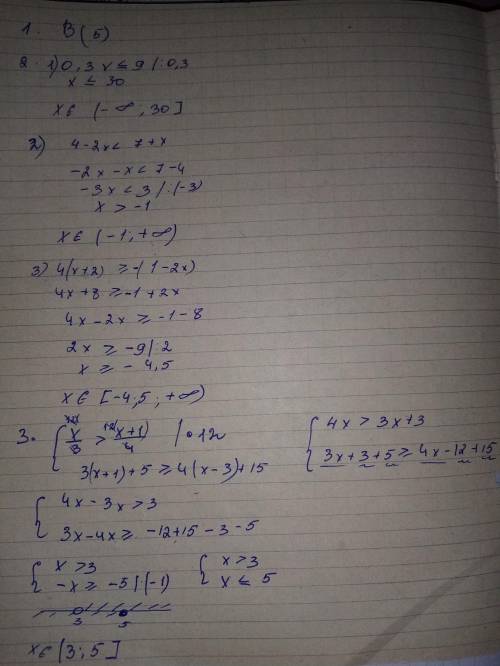 1. B(5)
2. 1) 0,3x ≤ 9 |:0,3
x ≤ 30
x ∈ (-∞, 30]
2) 4-2x < 7+x
-2x - x < 7-4
-3x < 3 |:(-3)
x > -1
x ∈ (-1; +∞)
3) 4(x+2) ≥ -(1-2x)
4x+8 ≥ -1+2x
4x-2x ≥ -1-8
2x ≥ -9 |:2
x ≥ -4,5
x ∈ [-4,5; +∞)
3. { x/3 > (x+1)/4 |•12
3(x+1)+5 ≥ 4(x-3)+15
{ 4x > 3x+3
3x+3+5 ≥ 4x-12+15
{ 4x-3x > 3
3x-4x ≥ -12+15-3-5
{ x > 3
-x ≥ -5 |:(-1)
{ x > 3
x ≤ 5
3 5
x ∈ (3; 5]